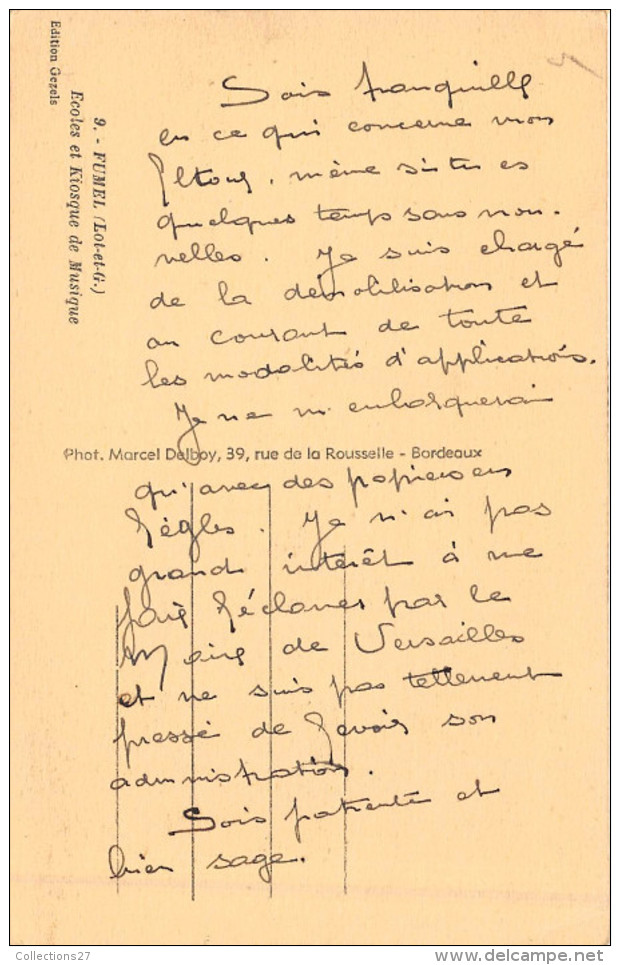 Edition Gezels
9. - FUMEL (Lot-et-G.)
Ecoles et Kiosque de Musique
Sois tranquille
en ce qui concerne mon
retour, même si tu es
quelques temps sans nou-
velles. Je suis chargé
de la démobilisation et
au courant de toute
les modalités d'applications.
Je ne m'embarquerai
Phot. Marcel Delboy, 39, rue de la Rousselle - Bordeaux
qu'avec des papiers en
règles. Je n'ai pas
grand intérêt à me
faire réclamer par le
Maire de Versailles
et ne suis pas tellement
pressé de revoir son
administration.
Sois patiente et
bien sage.
Collections27
www.delcampe.net